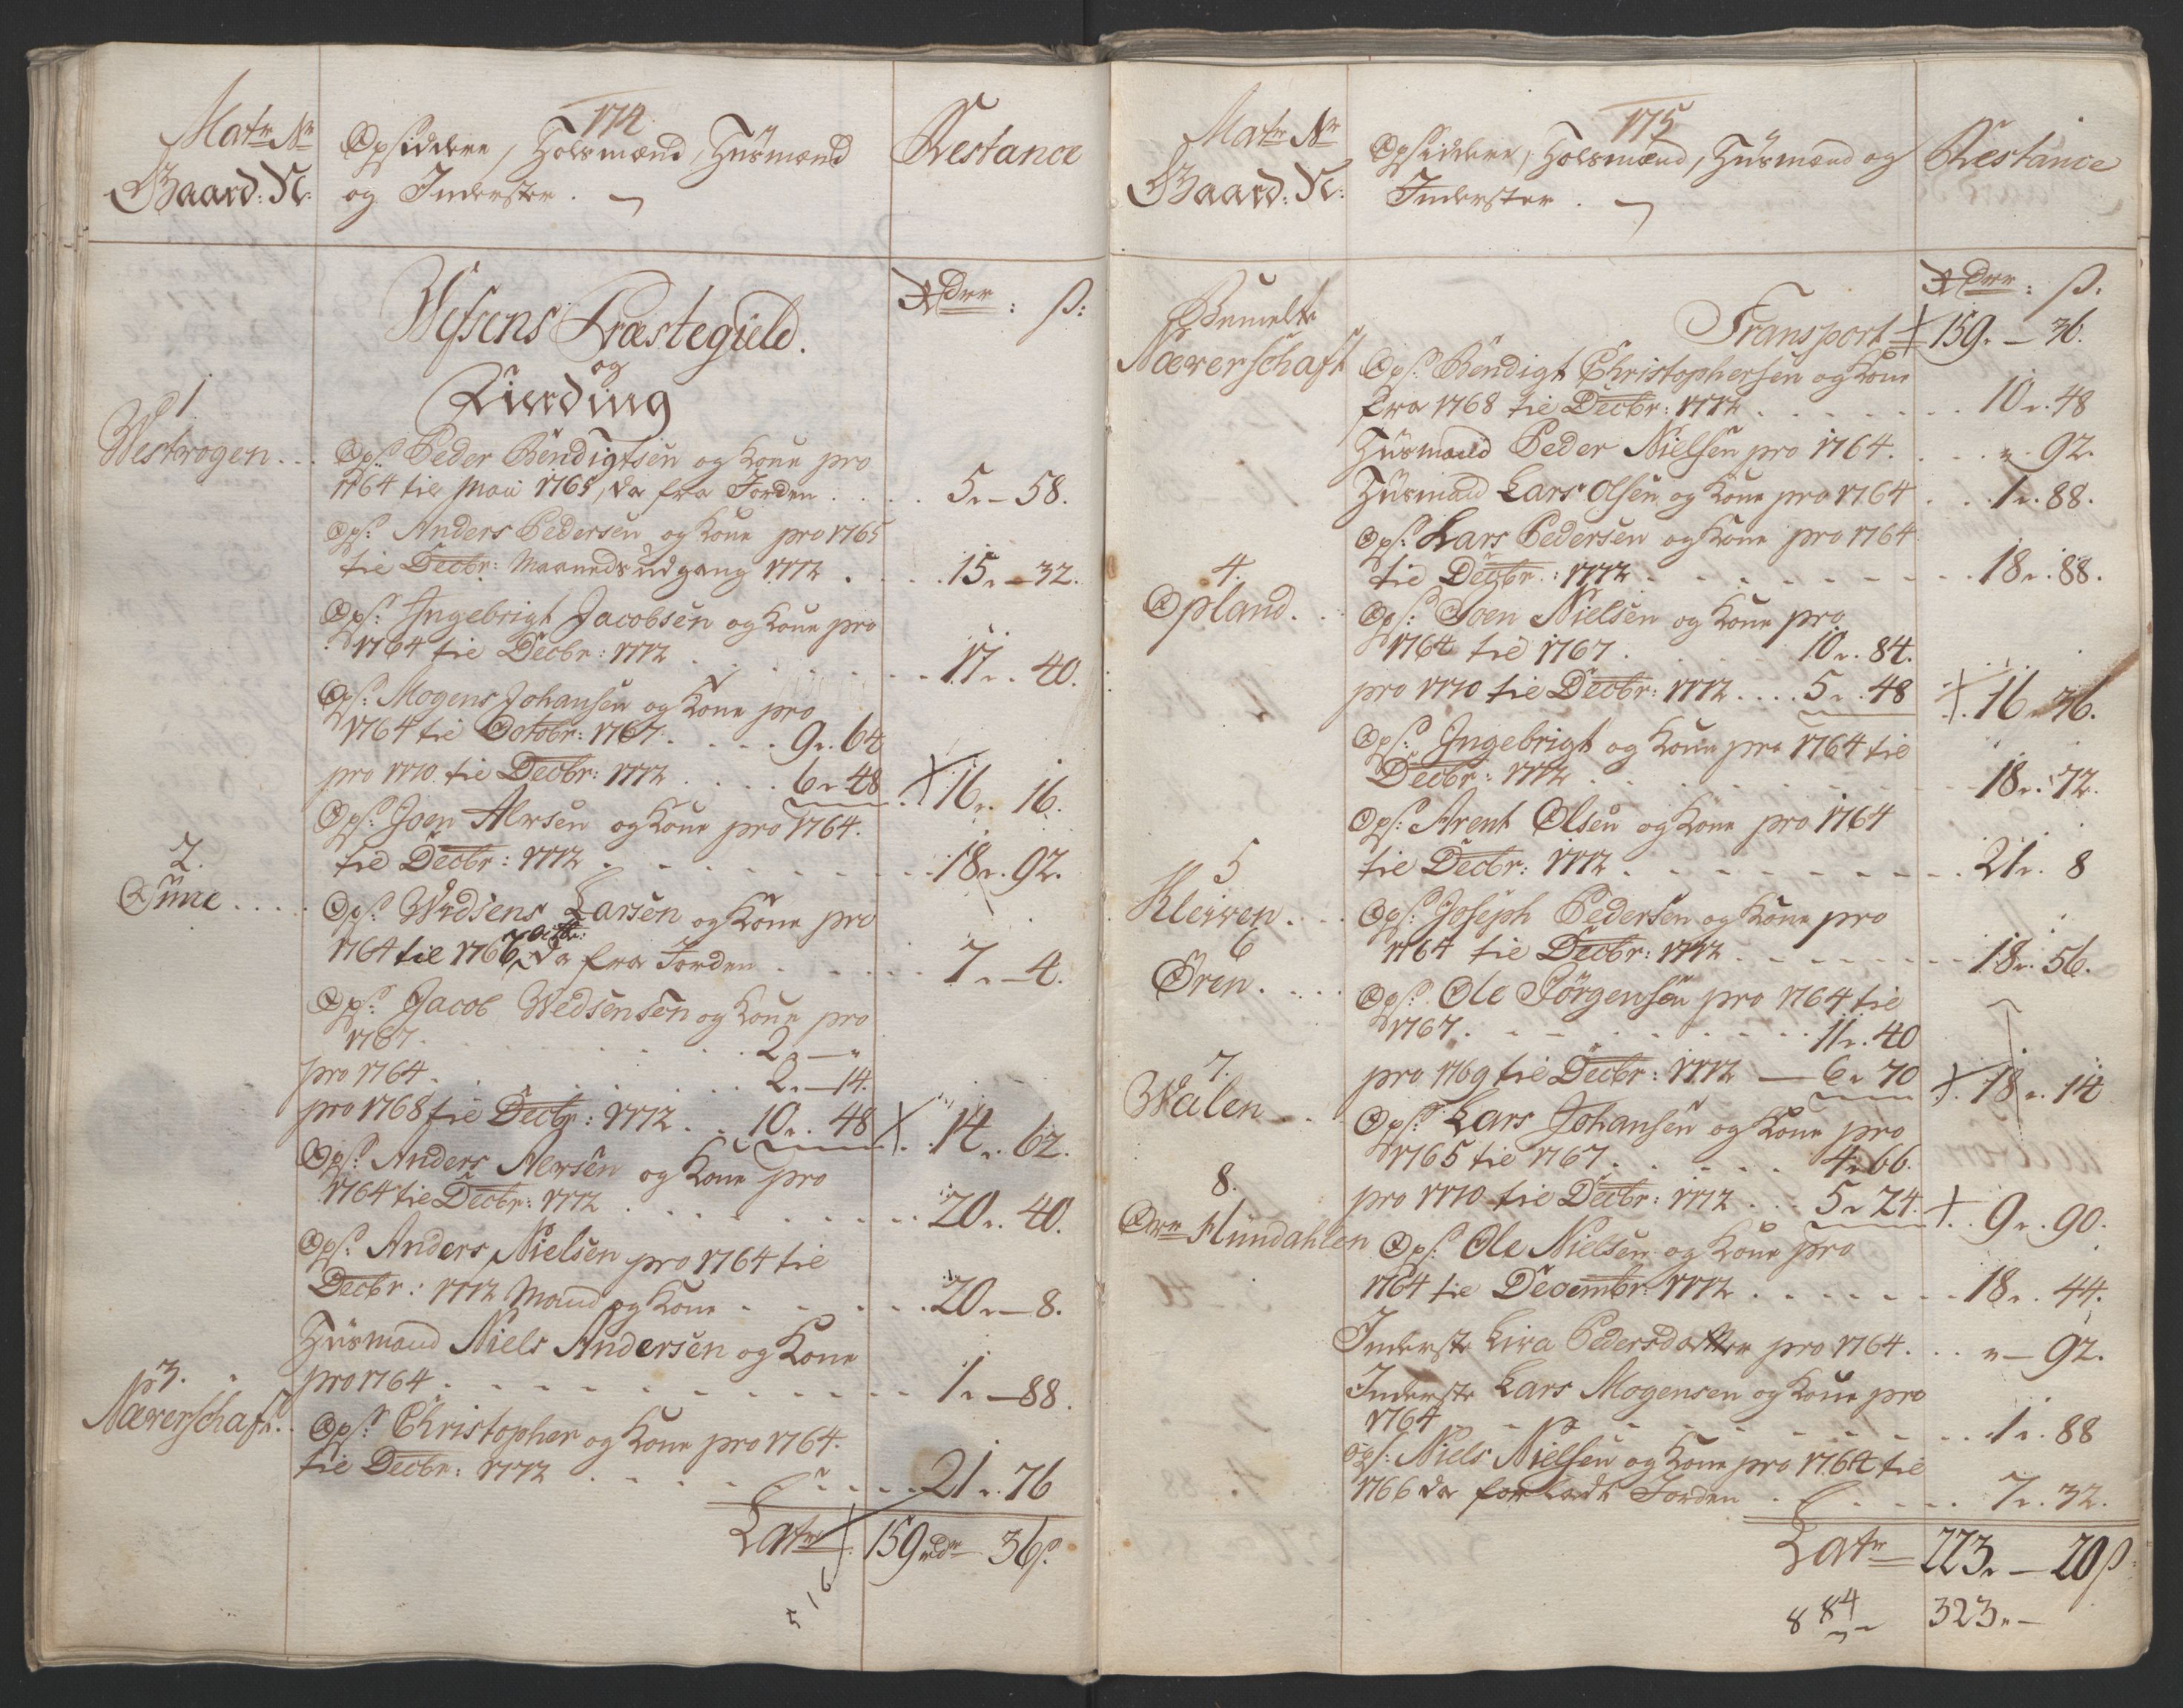 174
Matr Nr
Gaard: N:
Opsiddere, Holsmænd, Huusmænd
og Inderster.
Restance
Rdlr : ß:
Wefsens Præstegield.
og
Fierding
1
Westvogen...
Ops: Peder Bendigtsen og Kone pro
1764 til Maii 1765, da fra Jorden.... 5.-58.
Ops: Anders Pedersen og Kone pro 1765
til Decbr: Maaneds udgang 1772.... 15.-32.
Ops: Ingebrigt Jacobsen og Kone pro
1764 til Decbr: 1772 .... 17.. 40.
Ops: Mogens Johansen og Kone pro
1764 til Octobr: 1767.... 9.. 64
pro 1770 til Decbr: 1772.... 6.. 48 16.. 16.
2.
Ops: Joen Alersen og Kone pro 1764.
til Decbr: 1772.... 18.. 92.
Ops: Larsen og Kone pro
1764 til 1767, da fra Jorden.... 7.-4.
Ops: Jacob Wedsensen og Kone pro
1767.... 2.-"
pro 1764.... 2.-14.
pro 1768 til Decbr: 1772... 10.. 48 14.. 62.
Ops: Anders Alersen og Kone pro
1764 til Decbr: 1772.... 20.. 40.
Ops: Anders Nielsen pro 1764 til
Decbr: 1772 Mand og Kone.... 20.-8.
Huusmand Niels Andersen og Kone
pro 1764.... 1.-88.
3.
Næverschaft..
Ops: Christopher og Kone pro 1764.
til Decbr: 1772.... 21.. 76
Latr 159 rdr 36 ß.
516
175
Matr Nr
Gaard: N:
Opsiddere, Holsmænd, Huusmænd og
Inderster.
Restance
Rdlr : ß.
Bemelte
Næverschaft
Transport 159.-36.
Ops: Bendigt Christophersen og Kone
fra 1768 til Decbr: 1772.... 10.. 48
Huusmand Peder Nielsen pro 1764.... ". 92.
Huusmand Lars Olsen og Kone pro 1764.. 1.. 88.
Ops: Lars Pedersen og Kone pro 1764
til Decbr: 1772.... 18.. 88.
4.
Opland...
Ops: Joen Nielsen og Kone pro
1764 til 1767.... 10.. 84.
pro 1770 til Decbr: 1772.... 5.. 48 16. 36.
Ops: Ingebrigt og Kone pro 1764 til
Decbr: 1772.... 18.. 72.
Ops: Arent Olsen og Kone pro 1764
til Decbr: 1772.... 21.. 8
5
Kleiven...
Ops: Joseph Pedersen og Kone pro
1764 til Decbr: 1772.... 18.. 56.
6
Øren....
Ops: Ole Jörgensen pro 1764 til
1767.... 11.. 40
pro 1769 til Decbr: 1772 — 6.. 70 18.. 14
7.
Walen...
Ops: Lars Johansen og Kone pro
1765 til 1767.... 4.. 66.
pro 1770 til Decbr: 1772... 5.. 24. 9.. 90.
8.
Ovre Hundahlen
Ops: Ole Nielsen og Kone pro
1764 til Decembr: 1772.... 18.. 44.
Inderste Liva Pedersdatter pro 1764... "- 92.
Inderste Lars Mogensen og Kone pro
1764.... 1.. 88
Ops: Niels Nielsen og Kone pro 1764 til
1766 da forladt Jorden.... 7.. 32.
Latr 223.-20 ß.
8 84 323.-